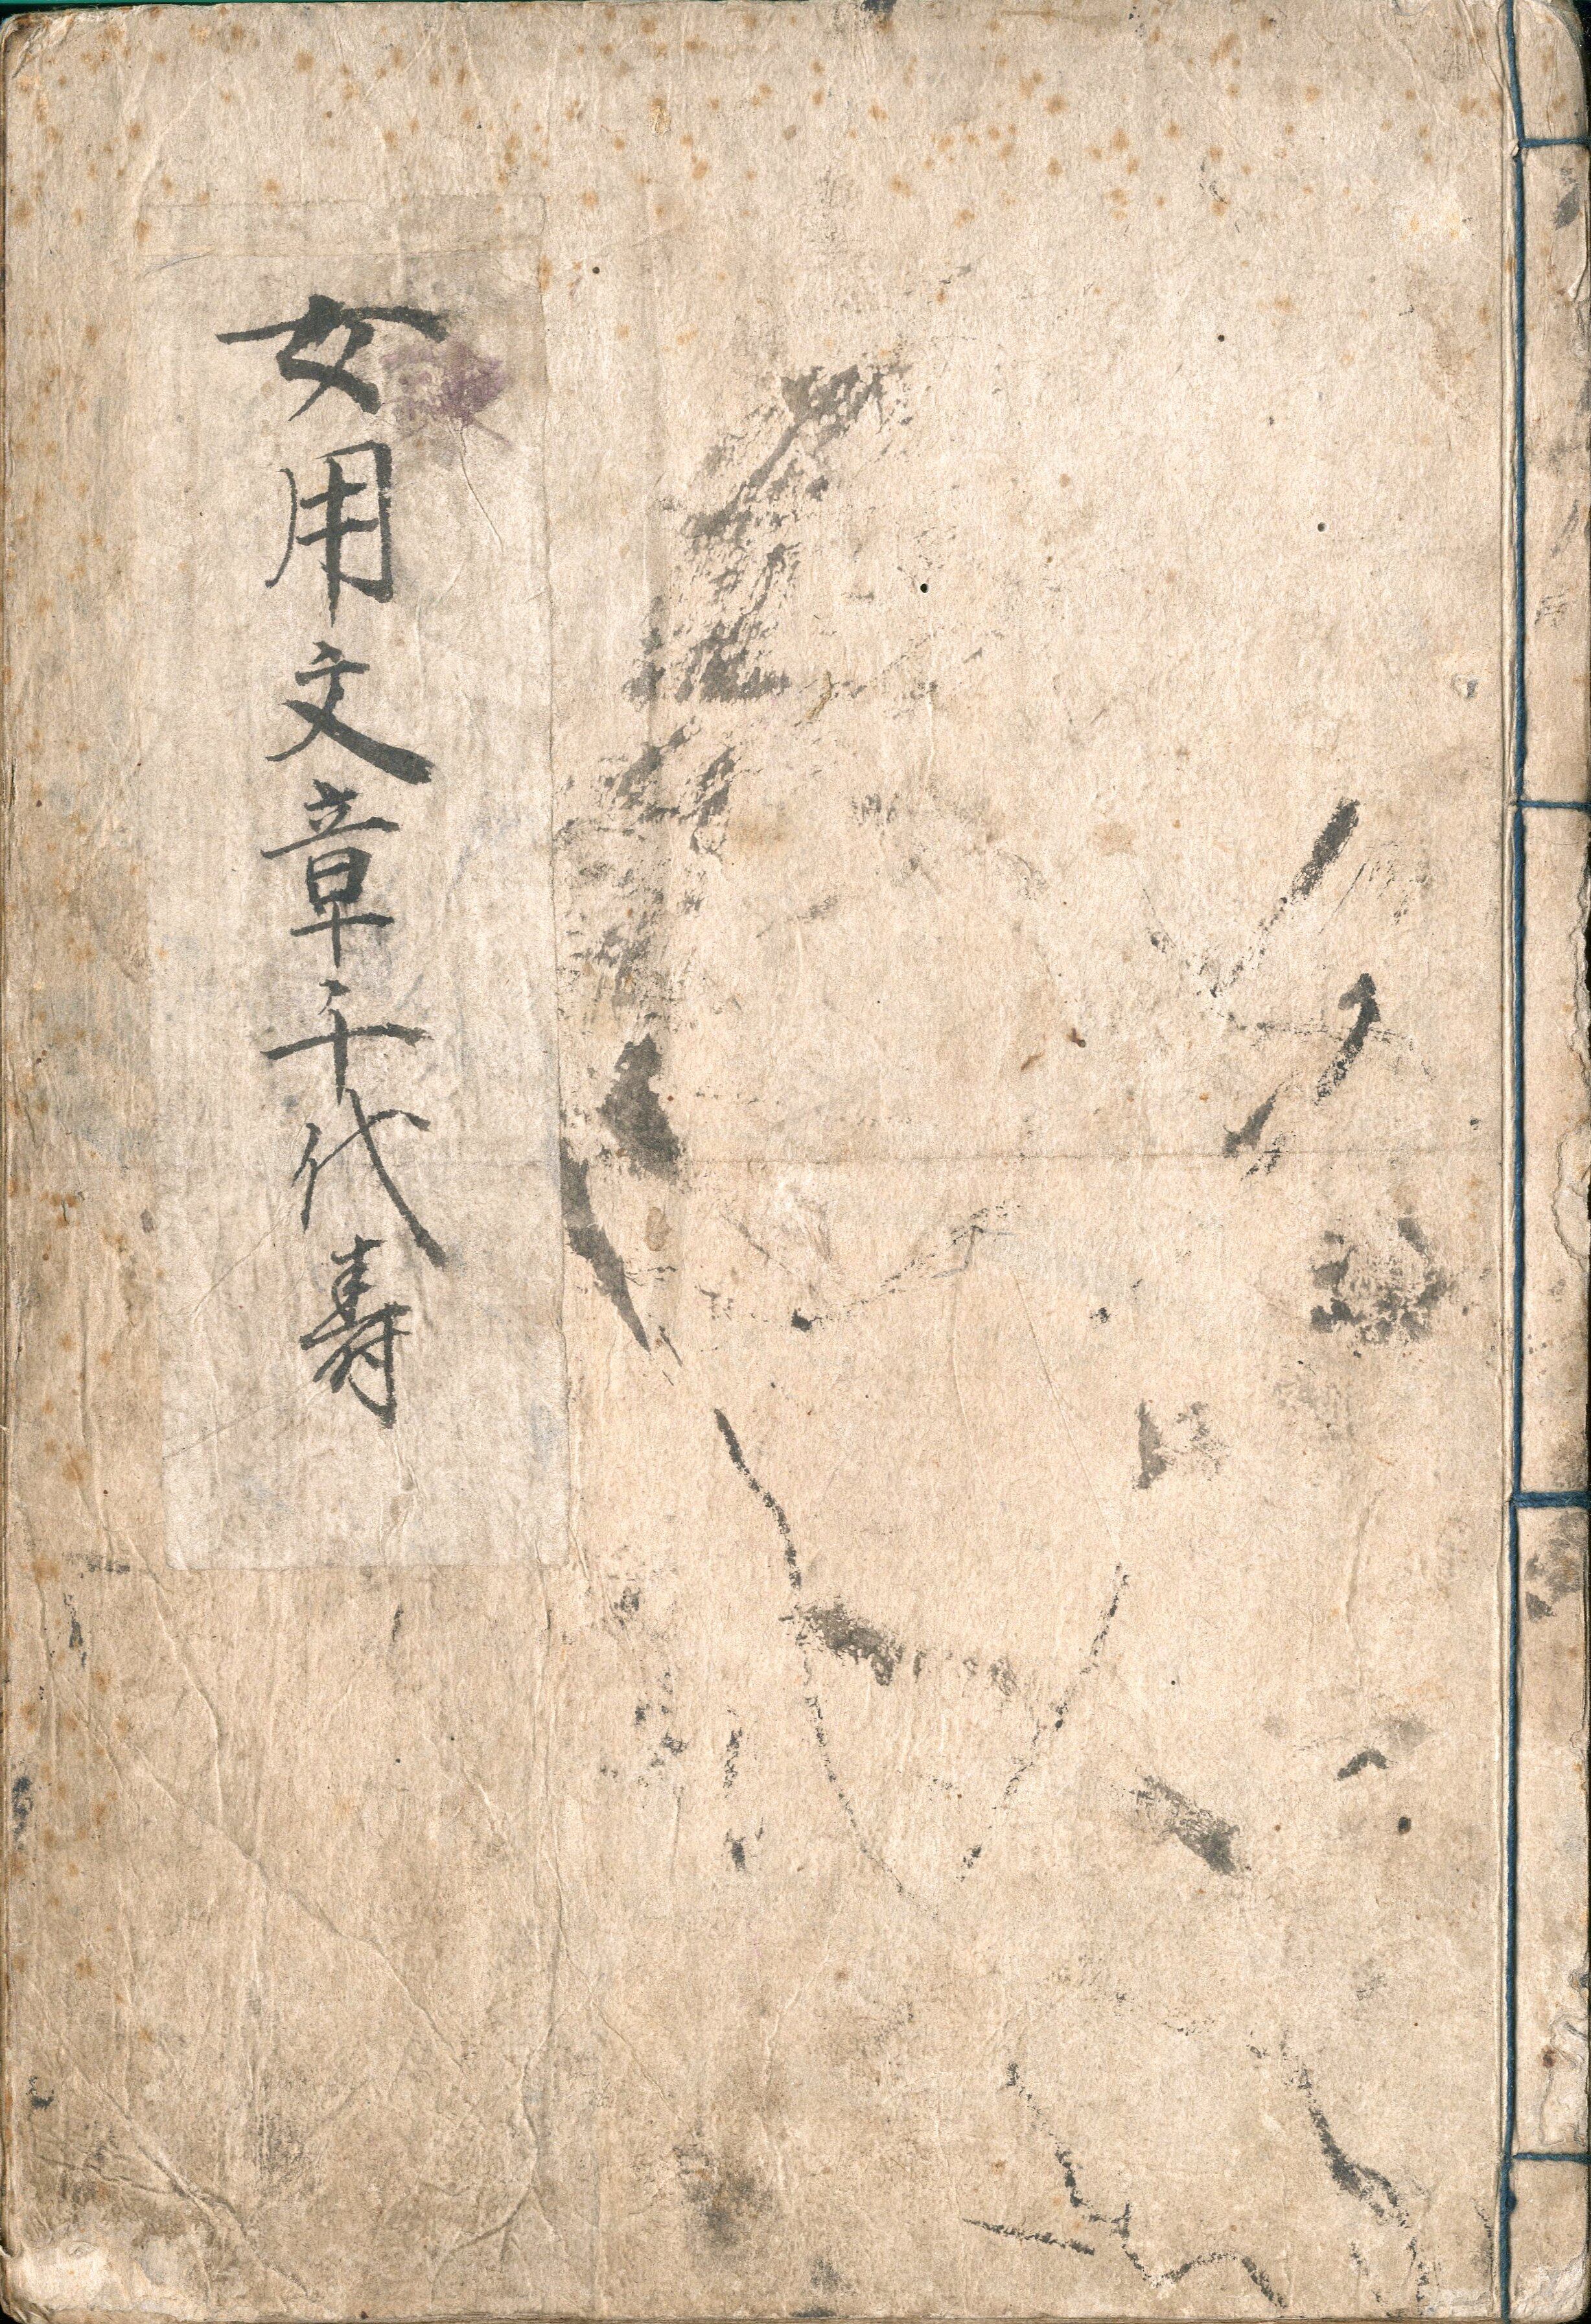 女用文章千代壽